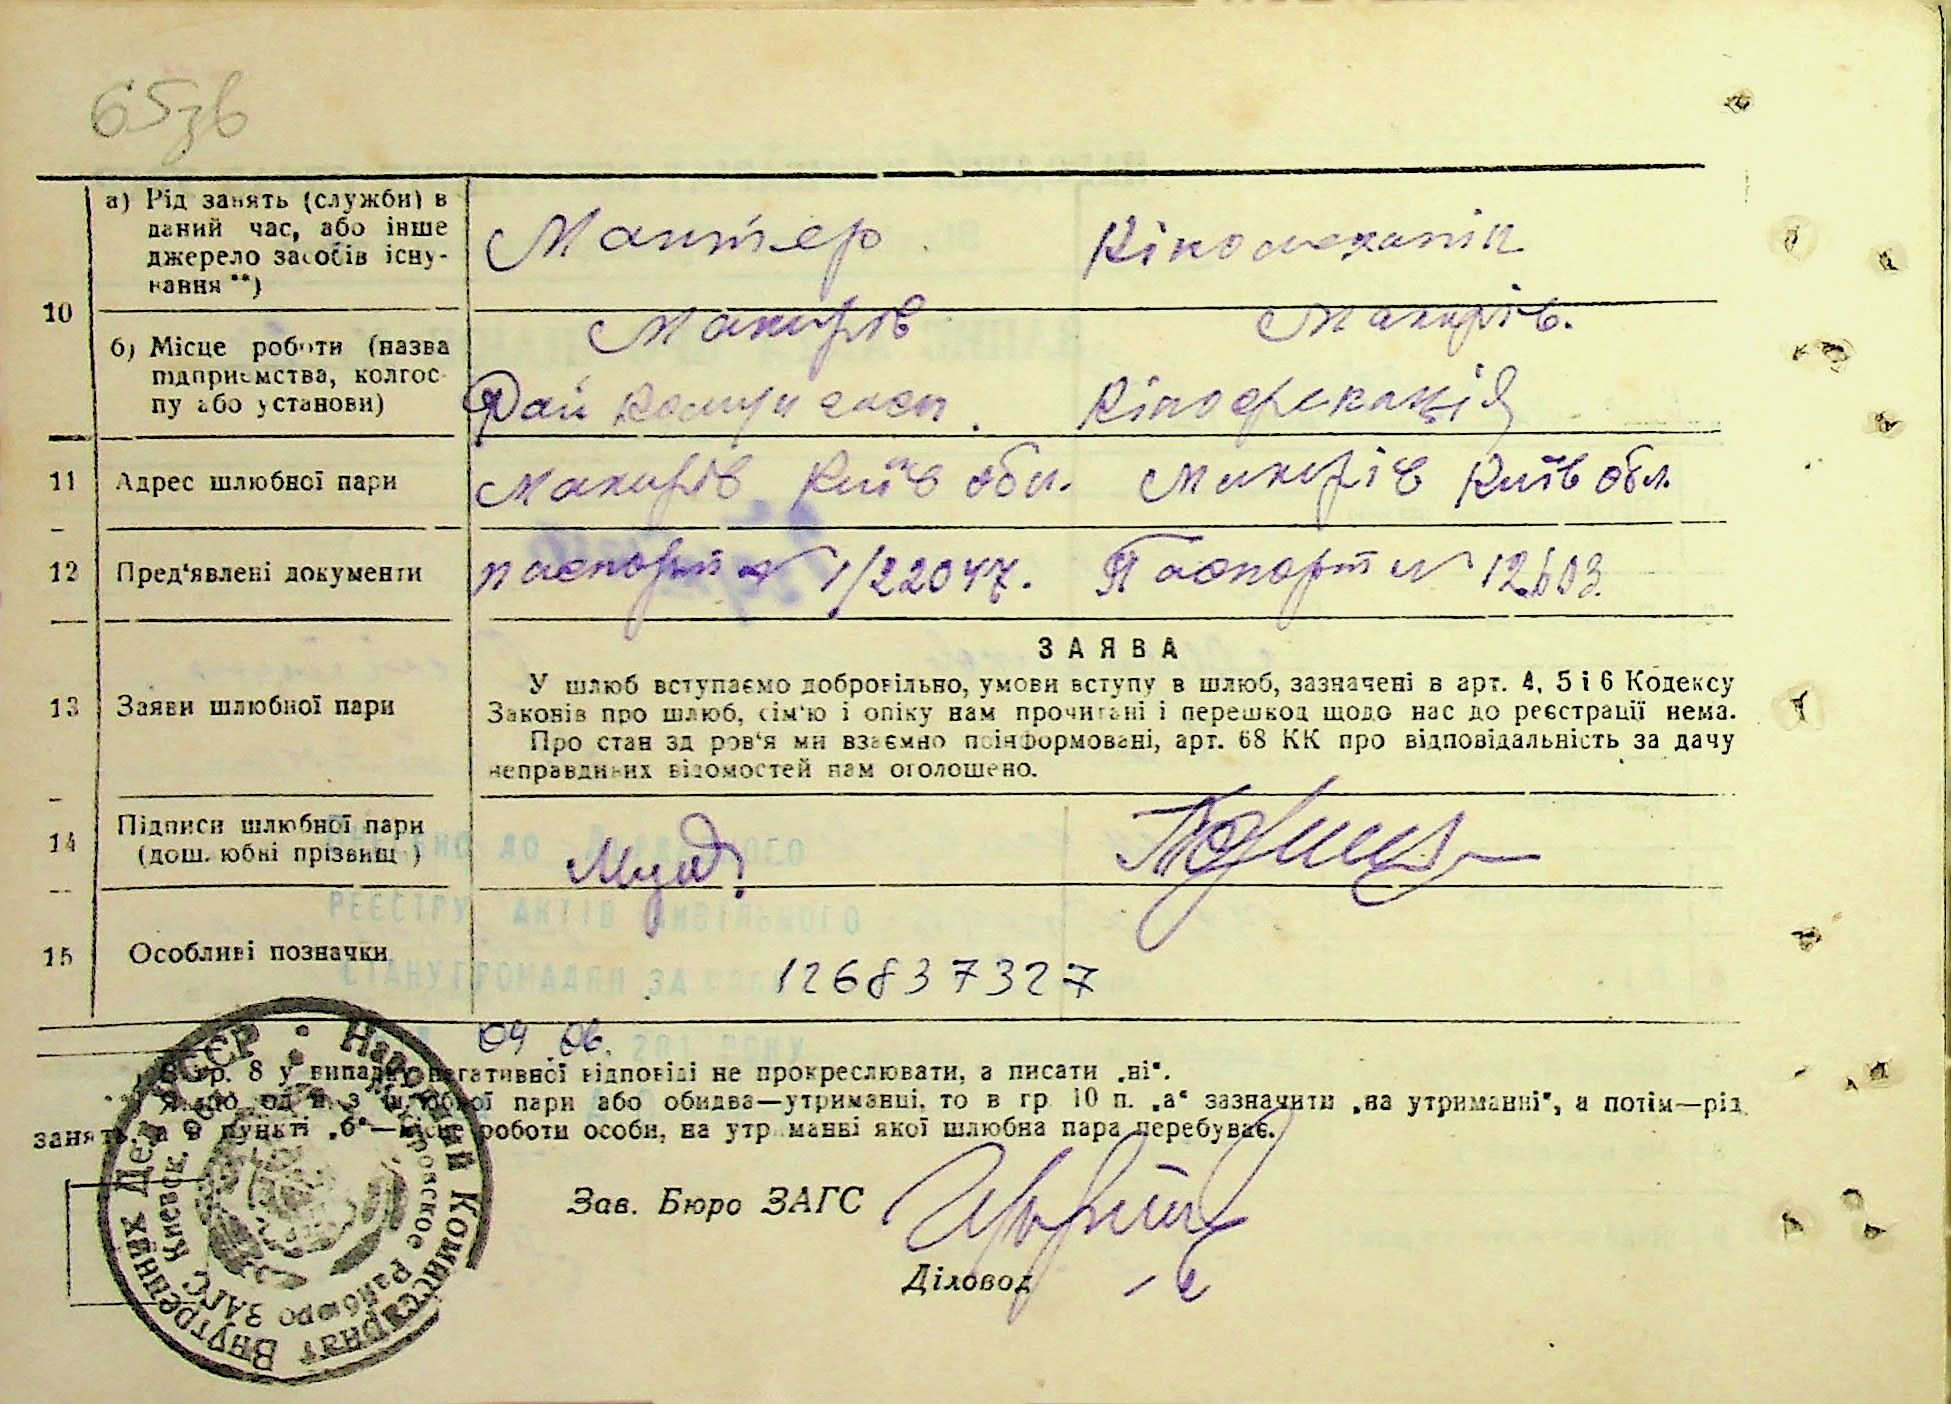 65зв
а) Рід занять (служби) в
даний час, або інше
джерело засобів існу-
вання **)
Монтер
Кіномеханік
10
б) Місце роботи (назва
підприємства, колгос-
пу або установи)
Макарів
Макарів.
Рай
Кінофікація
11 Адрес шлюбної пари Макарів Київ обл. Макарів Київ обл.
12 Пред'явлені документи паспорт № 1/22047. Паспорт № 12603.
ЗАЯВА
13 Заяви шлюбної пари
У шлюб вступаємо добровільно, умови вступу в шлюб, зазначені в арт. 4, 5 і 6 Кодексу
Законів про шлюб, сім'ю і опіку нам прочитані і перешкод щодо нас до реєстрації нема.
Про стан здоров'я ми взаємно поінформовані, арт. 68 КК про відповідальність за дачу
неправдивих відомостей нам оголошено.
14 Підписи шлюбної пари
(дошлюбні прізвища)
ДО
РЕЄСТРУ АКТІВ ЦИВІЛЬНОГО
СТАНУ ГРОМАДЯН ЗА
15 Особливі позначки
126837327
04 06. 201 РОКУ
гр. 8 у випадку негативної відповіді не прокреслювати, а писати „ні".
Якщо один з шлюбної пари або обидва—утриманці, то в гр. 10 п. „а" зазначити „на утриманні", а потім—рід
занять, а в пункті „б"—місце роботи особи, на утриманні якої шлюбна пара перебуває.
Зав. Бюро ЗАГС
Діловод
Народний Комиссариат Внутренних Дел УССР
Макаровское райбюро ЗАГС Киевск. обл.